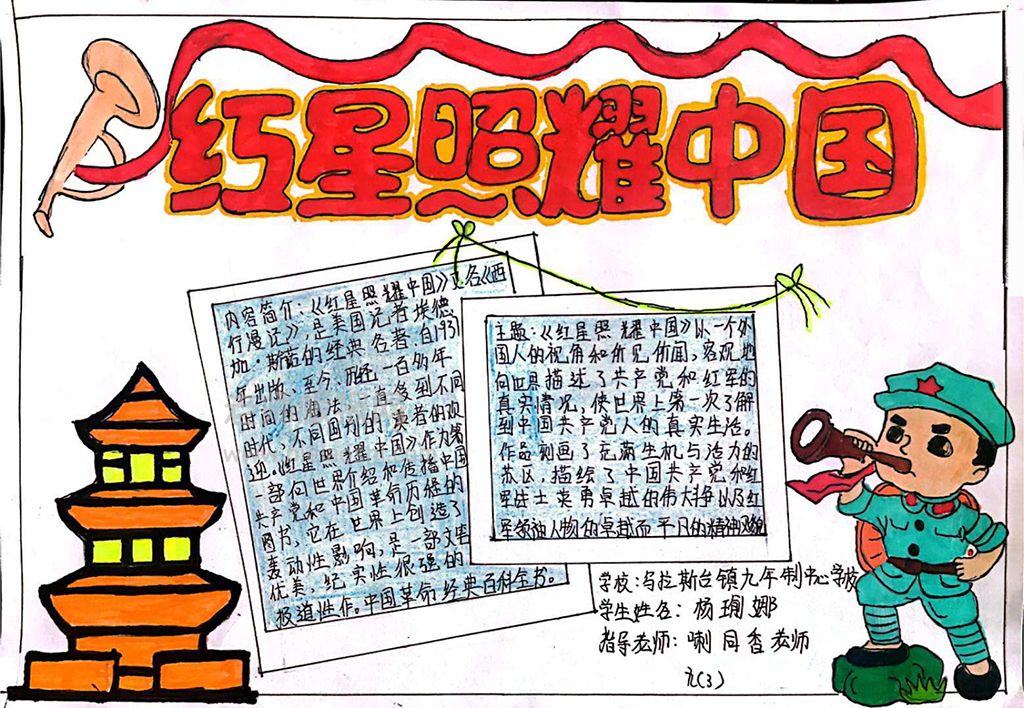 红星照耀中国
内容简介:《红星照耀中国》又名《西
行漫记》是美国记者埃德
加·斯诺的经典名著,自1937
年出版、至今、历经一百多年
时间的淘法,一直受到不同
时代,不同国刊的读者的欢
迎。《红星照耀中国》作为第
一部向世界介绍和传播中国
共产党和中国革命历程的
图书,它在世界上创造了
轰动性影响,是一部文
优美,纪实性很强的
报道性作。中国革命经典百科全书。
主题:《红星照耀中国》以一个外
国人的视角和所见所闻,客观地
向世界描述了共产党和红军的
真实情况,使世界上第一次了解
到中国共产党人的真实生活。
作品刻画了充满生机与活力的
苏区,描绘了中国共产党和红
军战士英勇卓越的伟大斗争以及红
军领袖人物的卓越而平凡的精神
学校:乌拉斯台镇九年制中心学校
学生姓名:杨瑚娜
指导老师:喇同香老师
九(3)